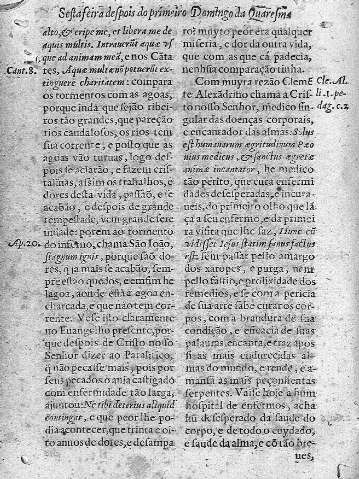 Sesta feira despois do primeiro Domingo da Quaresma
alto, & eripe me, et libera me de
aquis multis. Intrauerūt aquæ vs
que ad animam meā, e nos Cāta
Cant. 8.
res. Aquæ multæ nō potuerūt ex-
tinguere charitatem: compara
os tormentos com as agoas,
porque inda que sejão ribei-
ros tão grandes, que pareção
rios candalosos, os rios tem
sua corrente, e posto que as
agoas vão turuas, logo des-
pois se aclarão, e fazem cris-
talinas, assim os trabalhos, e
dores desta vida, passão, e se
acabão, e despois de grande
tempestade, vem grande sere
nidade: porem ao tormento
Ap. 20.
do inferno, chama São Ioão,
stagnum ignis, porque são do-
res, q̃ ja mais se acabão, sem-
pre estão quedos, e emfim he
lagoa, aonde está a agoa en-
charcada, e que não tem cor-
rente. Vese isto claramente
no Euangelho presente, por-
que despois de Cristo nosso
Senhor dizer ao Paralitico,
q̃ não pecasse mais, pois por
seus pecados o auia castigado
com enfermidade tão larga,
ajuntou: Ne tibi deterius aliquid
contingat, e que peor lhe po-
dia acontecer, que trinta e oi-
to annos de dores, e desampa
ro? muyto peor era qualquer
miseria, e dor da outra vida,
que com as que cá padecia,
nenhũa comparação tinha.
Com muyta rezão Clemē
Cle. Al.
te Alexādrino chama a Cris-
li. 1. pe-
to nosso Senhor, medico sin-
dag. c. 2
gular das doenças corporais,
e encantador das almas: Solus
est humanarum ægritudinum Pæ
nius medicus, & sanctus ægrotæ
animæ incantator, he medico
tão perito, que cura enfermi
dades desesperadas, e incura-
ueis, do primeiro olho que lā
ça a seu enfermo, e da primei
ra visita que lhe faz,
sem passar pello amargo
dos xaropes, e purga, nem
pello fastio, e prolixidade dos
remedios, e se com a pericia
de sua arte sabe curar os cor-
pos, com a brandura de sua
condição, e eficacia de suas
palauras, encanta, e traz apos
si as mais endurecidas al-
mas do mundo, e rende, e a-
mansa as mais peçonhentas
serpentes. Vaise hoje a hum
hospital de enfermos, acha
hũ desesperado da saude do
corpo, e de todo o coydado,
e saude da alma, e cō tão bre-
ues,